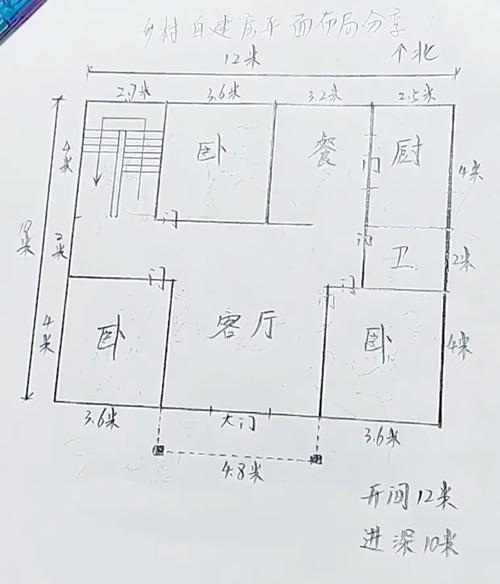 乡村自建房平面布局分享
12米
个北
2.7米 3.6米 3.2米 2.5米
4米 卧 餐 门 厨 4米
10米
门
2米 门 卫 2米
门 门
4米 卧 客厅 卧 4米
3.6米 大门 3.6米
4.8米
开间12米
进深10米